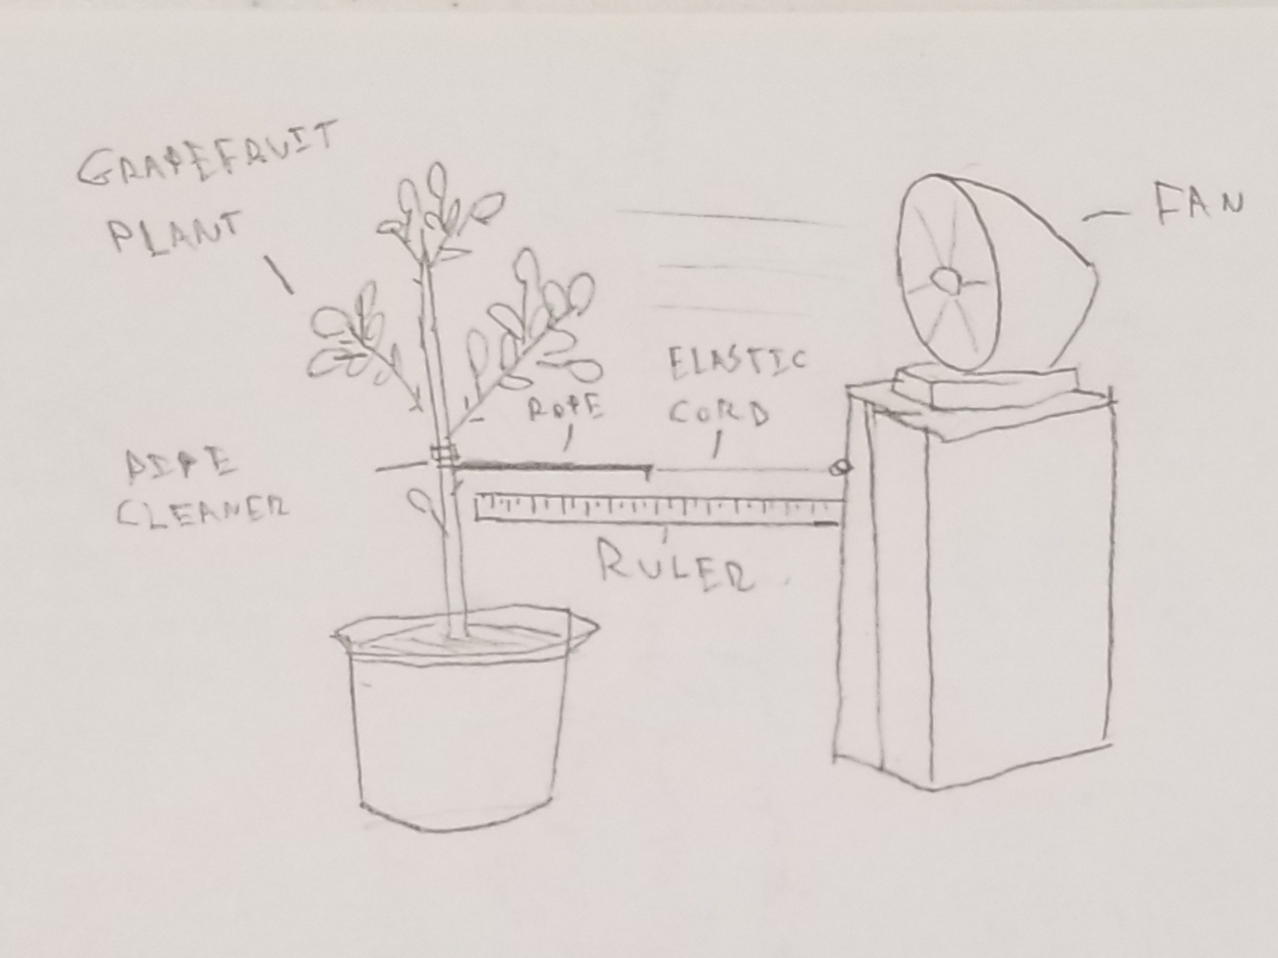 GRAPEFRUIT
PLANT
FAN
ELASTIC
CORD
ROPE
PIPE
CLEANER
RULER